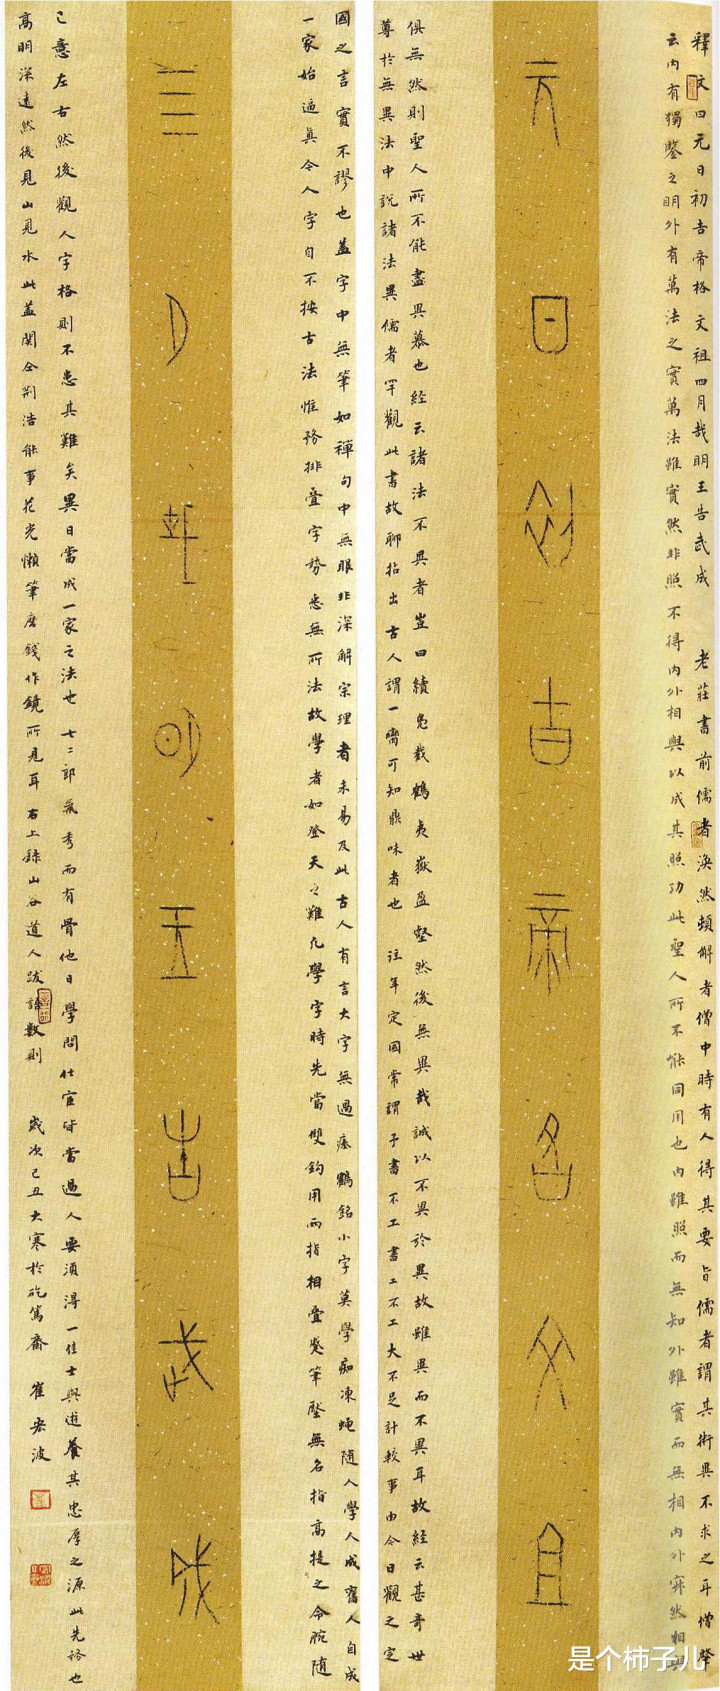 釋文曰元日初吉帝格文祖四月哉明王告武成 老莊書前儒者渙然頓解者僧中時有人得其要旨儒者謂其術異不求之耳僧肇
云內有獨鑒之明外有萬法之實萬法雖實然非照不得內外相與以成其照功此聖人所不能同用也內雖照而無知外雖實而無相內外寂然相與
元日初吉帝各文且
俱無然則聖人所不能盡異慕也經云諸法不異者豈曰續鳧截鶴夷嶽盈壑然後無異哉誠以不異於異故雖異而不異耳故經云甚奇世
尊於無異法中說諸法異儒者罕觀此書故聊拈出古人謂一臠可知鼎味者也 往年定國常謂予書不工書工不工大不足計較事由今日觀之定
國之言實不謬也蓋字中無筆如禪句中無眼非深解宗理者未易及此古人有言大字無過瘞鶴銘小字莫學痴凍蠅隨人學人成舊人自成
一家始逼真今人字自不按古法惟務排疊字勢悉無所法故學者如登天之難凡學字時先當雙鈎用兩指相疊蹙筆壓無名指高提之令腕隨
亖月哉明王告武成
己意左右然後觀人字格則不患其難矣異日當成一家之法也 七二郎氣秀而有骨他日學問仕宦皆當過人要須得一佳士與遊養其忠厚之源此先務也
高明深遠然後見山見水此蓋關仝荊浩能事花光懶筆磨錢作鏡所見耳右上錄山谷道人跋語數則 歲次己丑大寒於矻篤齋 崔宏波
是个柿子儿